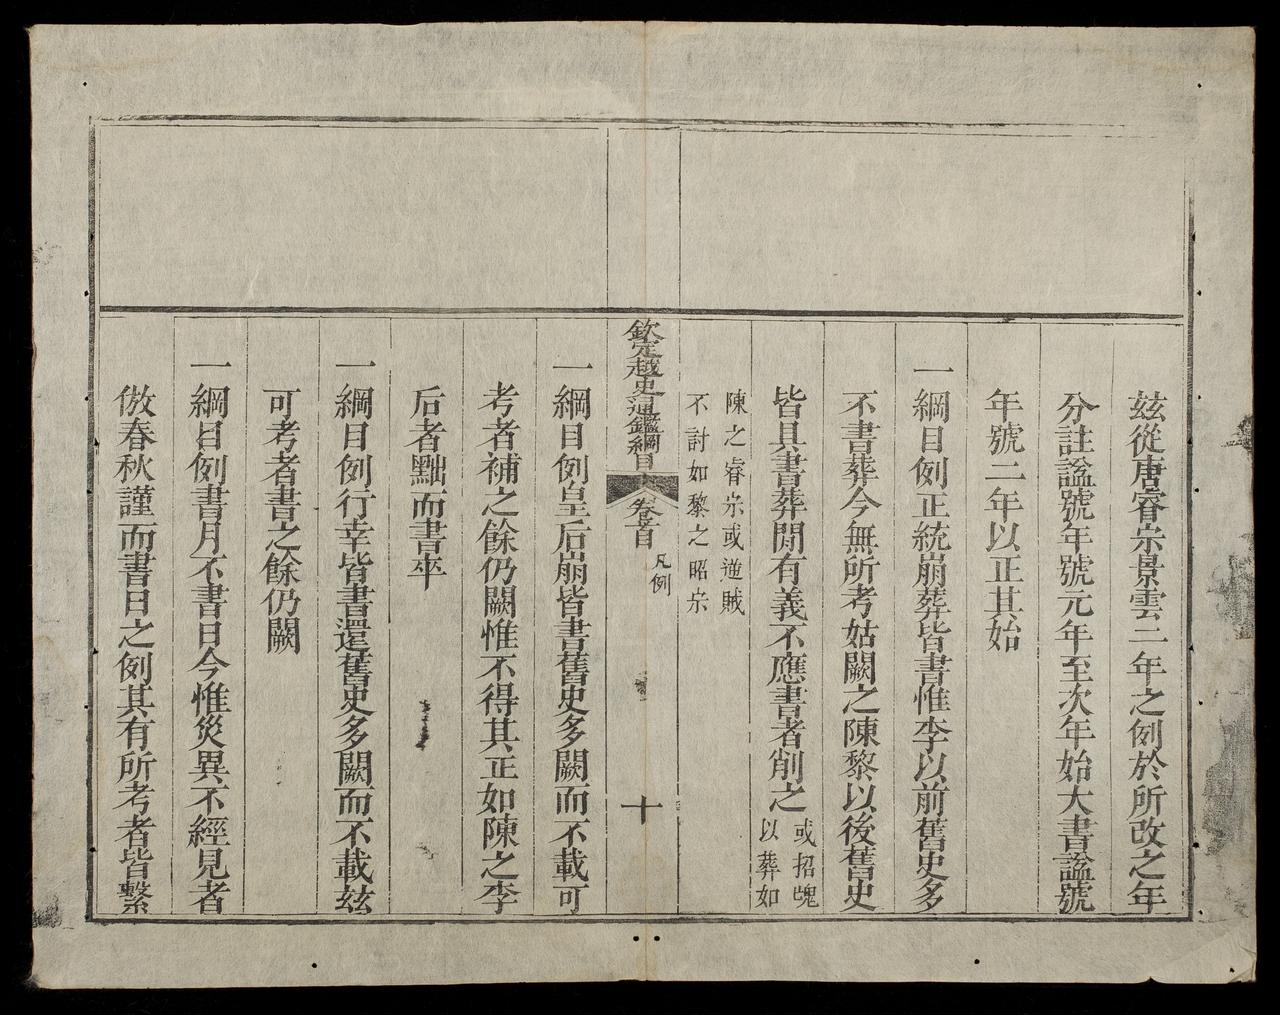 玆從唐睿宗景雲二年之例於所改之年
分註諡號年號元年至次年始大書諡號
年號二年以正其始
一綱目例正統崩葬皆書惟李以前舊史多
不書葬今無所考姑闕之陳黎以後舊史
皆具書葬閒有義不應書者削之
或招魂
以葬如
陳之睿宗或逆賊
不討如黎之昭宗
欽定越史通鑑綱目
卷首
凡例
十
一綱目例皇后崩皆書舊史多闕而不載可
考者補之餘仍闕惟不得其正如陳之李
后者黜而書卒
一綱目例行幸皆書還舊史多闕而不載玆
可考者書之餘仍闕
一綱目例書月不書日今惟災異不經見者
倣春秋謹而書日之例其有所考者皆繫